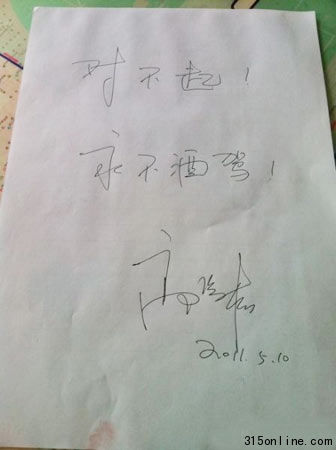 对不起！
永不酒驾！
高晓松
2011.5.10
315online.com